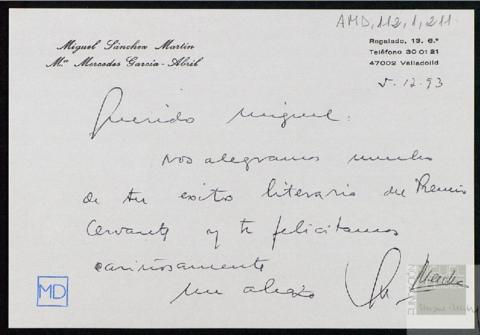 AMD,112,1,211
Miguel Sánchez Martín
Mª Mercedes García-Abril
Regalado, 13, 6.º
Teléfono 30 01 21
47002 Valladolid
5-12-93
Querido Miguel:
Nos alegramos mucho
de tu exito literario del Premio
Cervantes y te felicitamos
cariñosamente
Un abrazo
MD